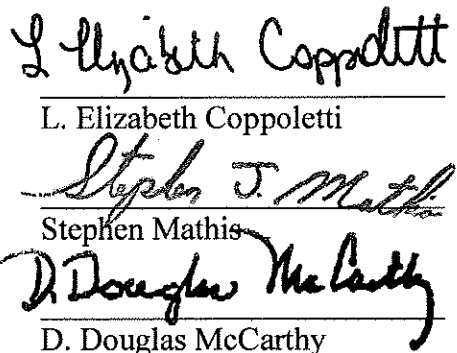 L Elizabeth Coppoletti
L. Elizabeth Coppoletti
Stephen J. Mathis
Stephen Mathis
D. Douglas McCarthy
D. Douglas McCarthy